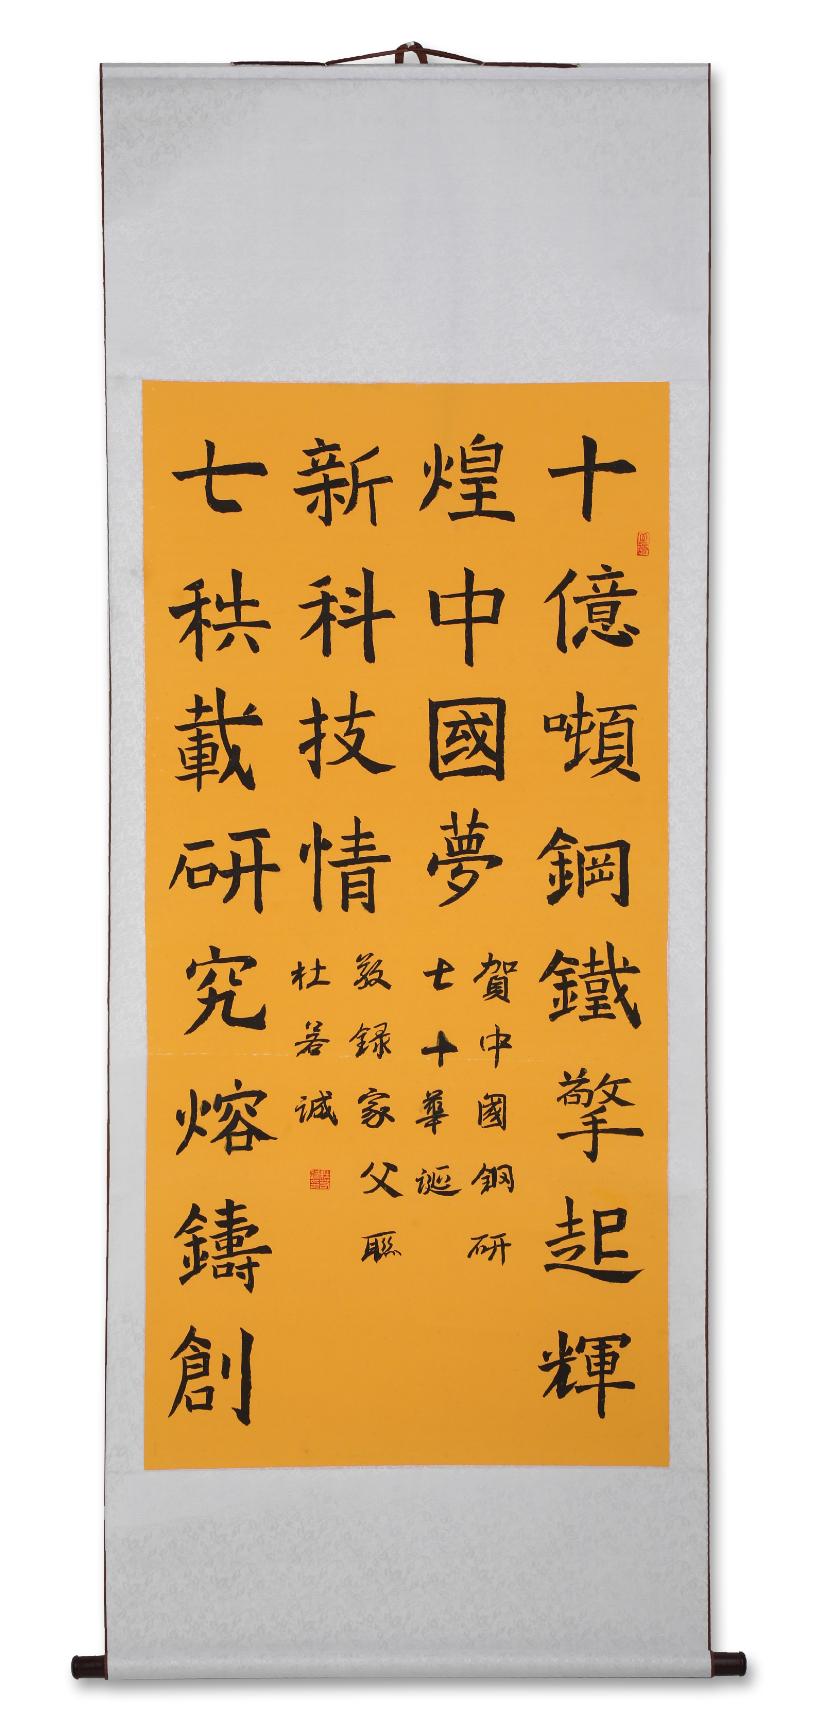 十億噸鋼鐵擎起輝
煌中國夢
七秩載研究熔鑄創
新科技情
賀中國鋼研
七十華誕
敬録家父聯
杜若誠